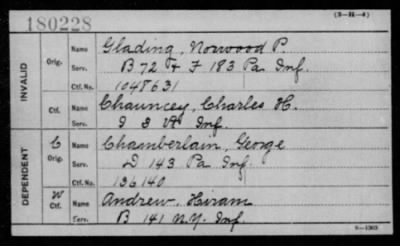 180228
(3-H-4)
INVALID
Orig. Name Glading, Norwood P.
Serv. B 72 & F 183 Pa Inf.
Ctf. No. 1048631
Ctf. Name Chauncey, Charles H.
Serv. I 3 Vt Inf.
DEPENDENT
C Orig. Name Chamberlain, George
Serv. D 143 Pa Inf.
Ctf. No. 136140
W Ctf. Name Andrew, Hiram
Serv. B 141 N.Y. Inf.